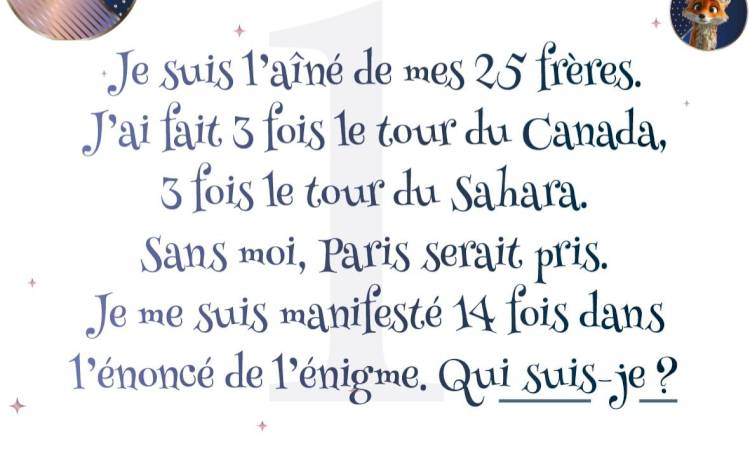 Je suis l'aîné de mes 25 frères.
J'ai fait 3 fois le tour du Canada,
3 fois le tour du Sahara.
Sans moi, Paris serait pris.
Je me suis manifesté 14 fois dans
l'énoncé de l'énigme. Qui suis-je ?
1